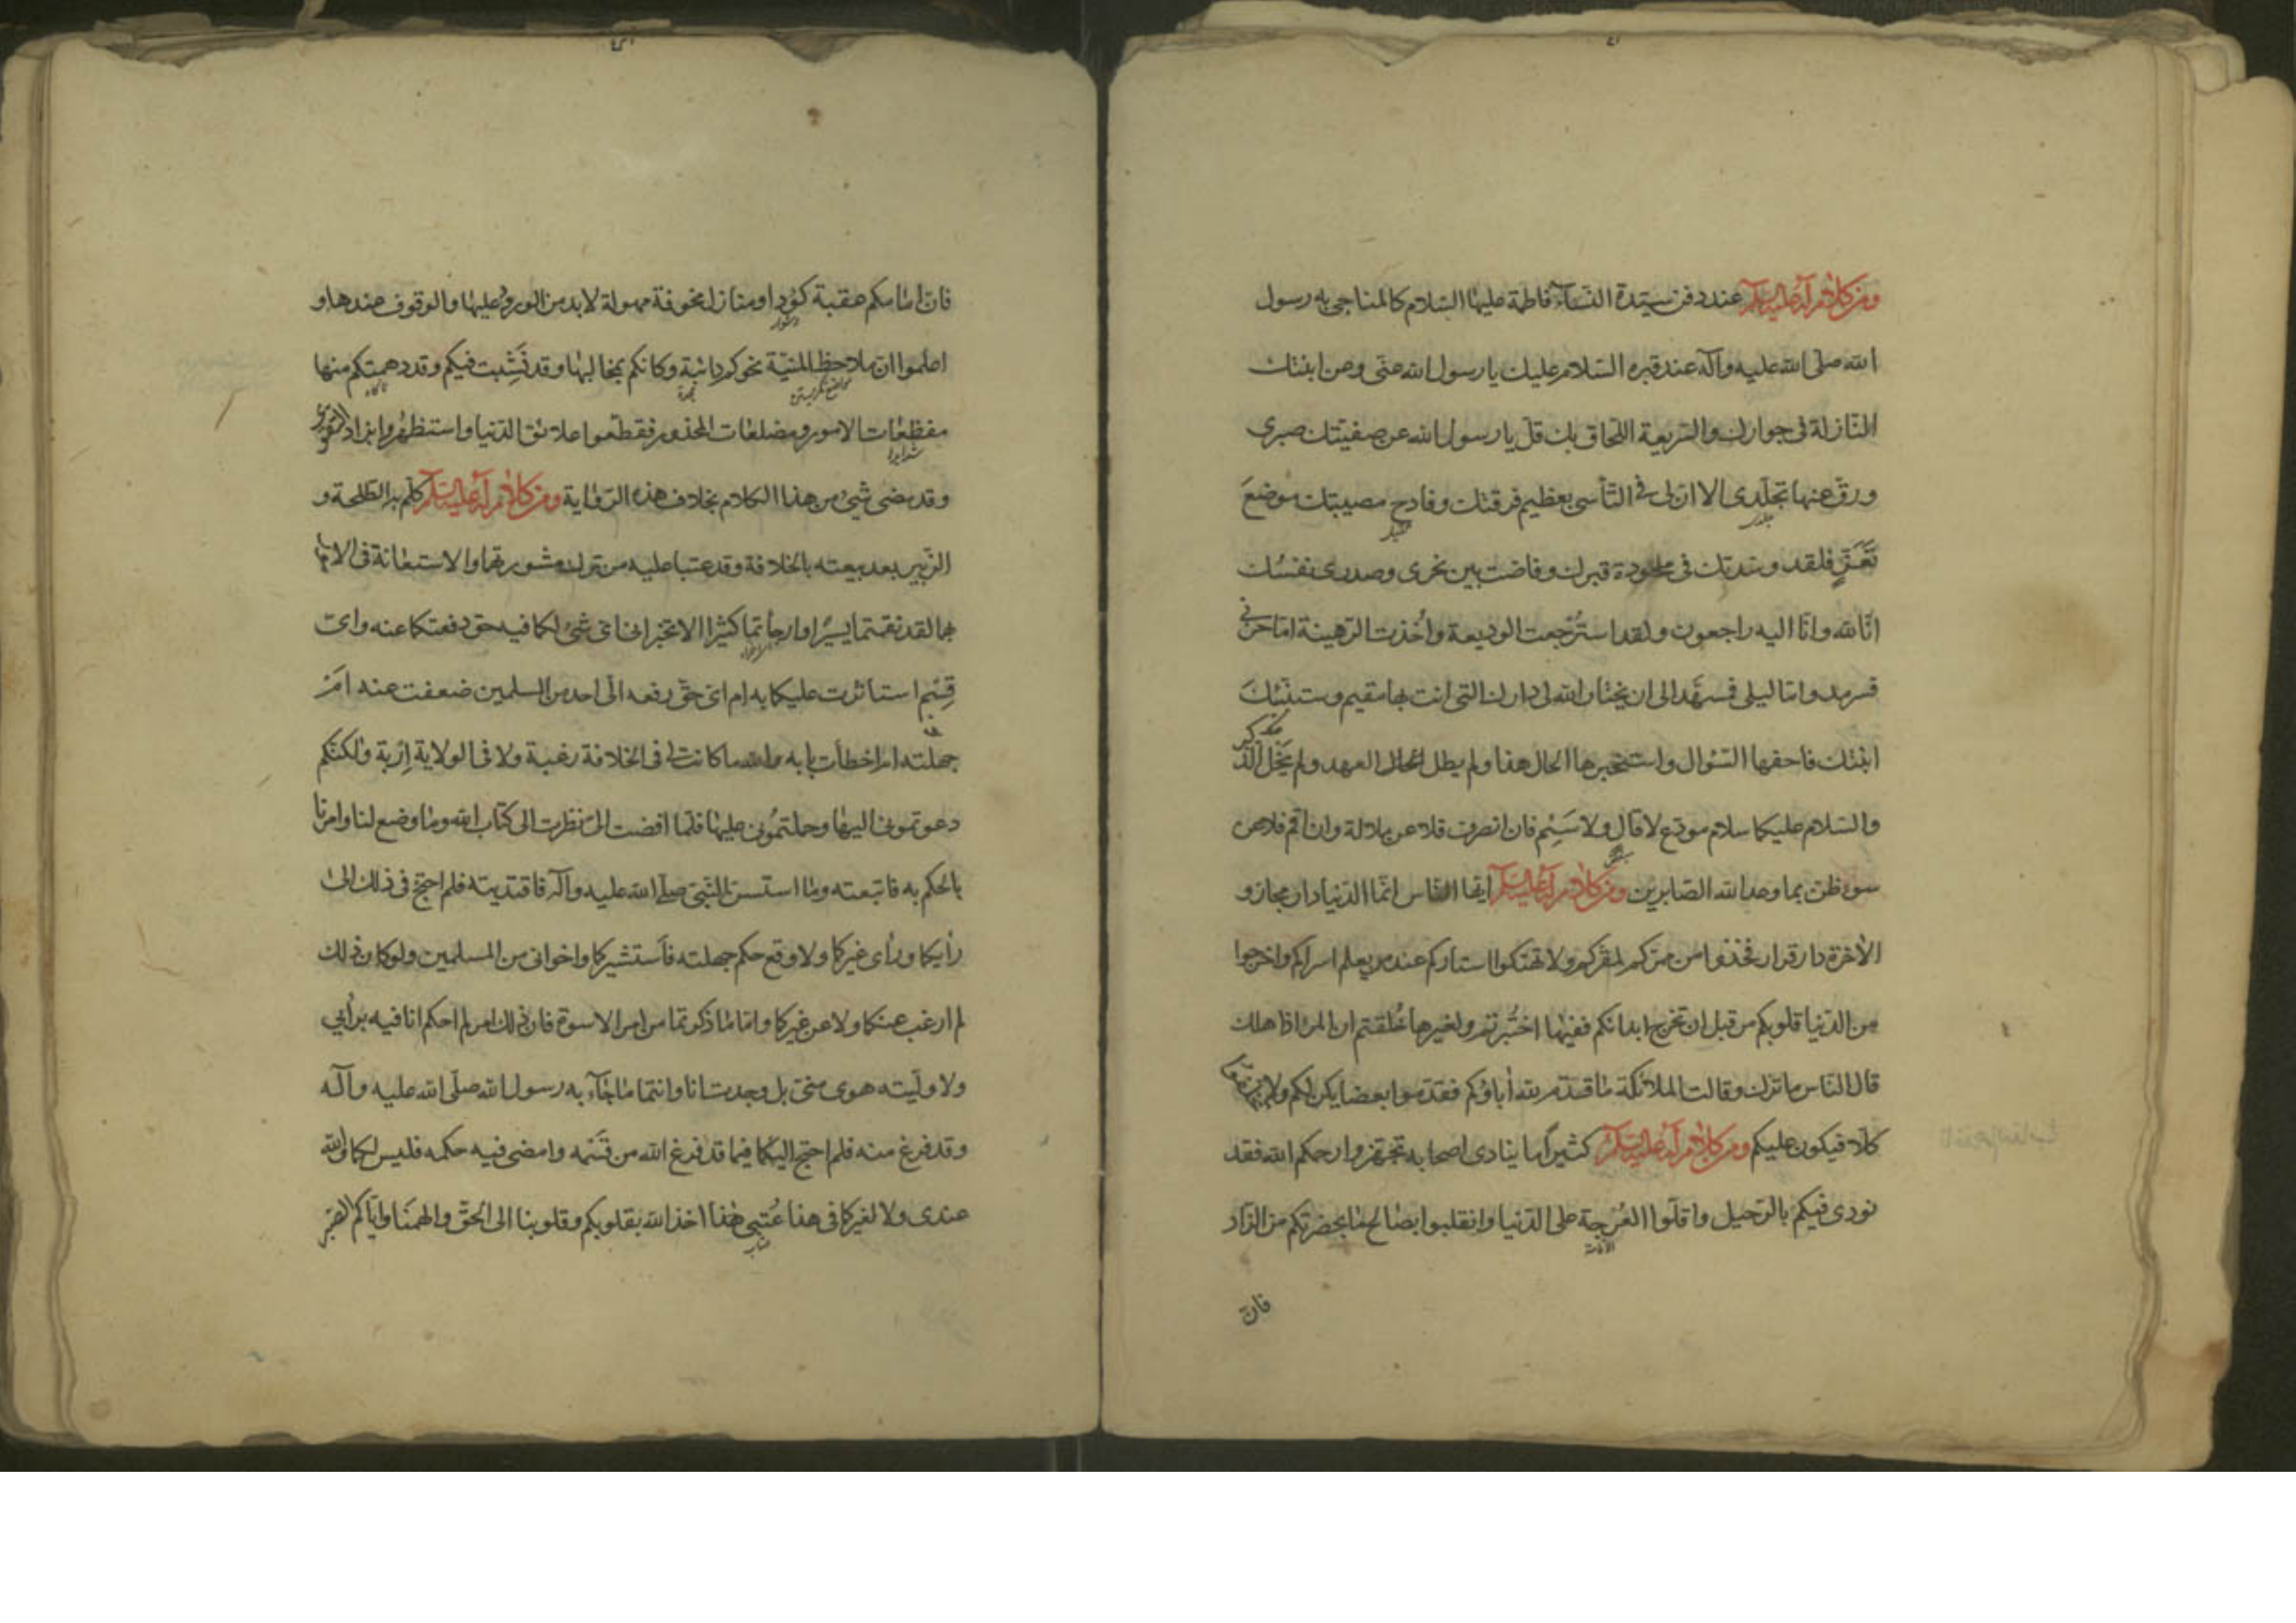 ومن كلام له عليه السلام عند دفن سيّدة النّسآء فاطمة عليها السّلام كالمناجى به رسول
الله صلى الله عليه وآله عند قبره السّلام عليك يا رسول الله عنّى وعن ابنتك
النّازلة فى جوارك والسّريعة اللّحاق بك قلّ يا رسول الله عن صفيّتك صبرى
ورقّ عنها تجلّدى الا ان لى فى التّأسى بعظيم فرقتك وفادح مصيبتك موضعَ
تَعَزٍّ فلقد وسّدتك فى ملحودة قبرك وفاضت بين نحرى وصدرى نفسُك
انّا لله وانّا اليه راجعون ولقد استُرجعت الوديعة واُخذت الرّهينة امّا حزنى
فسرمد وامّا ليلى فمسهّد الى ان يختار الله لى دارك التى انت بها مقيم وستنبّئك
ابنتك فاحفها السّؤال واستخبرها الحال هذا ولم يطل العهد ولم يَخْل الذّكر
والسّلام عليكما سلام مودّع لا قالٍ ولا سَئِم فان انصرف فلا عن ملالة وان اقم فلا عن
سوء ظنّ بما وعد الله الصّابرين ومن كلام له عليه السلام ايّها النّاس انّما الدّنيا دار مجاز و
الآخرة دار قرار فخذوا من ممرّكم لمقرّكم ولا تهتكوا استاركم عند من يعلم اسراركم واخرجوا
من الدّنيا قلوبكم من قبل ان تخرج ابدانكم ففيها اختُبرتم ولغيرها خُلقتم ان المرء اذا هلك
قال النّاس ما ترك وقالت الملائكة ما قدّم لله أباؤكم فقدّموا بعضا يكن لكم ولا
كلّا فيكون عليكم ومن كلام له عليه السلام كثيرا ما ينادى اصحابه تجهّزوا رحمكم الله فقد
نودى فيكم بالرّحيل واقلّوا العُرجة على الدّنيا وانقلبوا بصالح ما بحضرتكم من الزّاد
فانّ
فانّ امامكم عقبة كؤدا ومنازل مخوفة مهولة لا بد من الورود عليها والوقوف عندها و
اعلموا ان ملاحظ المنيّة نحوكم دائبة وكانكم بمخالبها وقد نَشِبت فيكم وقد دهمتكم منها
مفظعات الامور ومضلعات المحذور فقطّعوا علائق الدّنيا واستظهروا بزاد التقوى
وقد مضى شىء من هذا الكلام بخلاف هذه الرّواية ومن كلام له عليه السلام كلّم به الطّلحة و
الزّبير بعد بيعته بالخلافة وقد عتبا عليه من ترك مشورتهما والاستعانة فى الامور
بهما لقد نقمتما يسيرًا وارجأتما كثيرًا الا تخبرانى اىّ شىء لكما فيه حق دفعتكما عنه واىّ
قِسْمٍ استأثرت عليكما به ام اىّ حقّ رفعه الىّ احد من المسلمين ضعفت عنه ام
جهلته ام اخطأت بابه والله ما كانت لى فى الخلافة رغبة ولا فى الولاية اِرْبة ولكنّكم
دعوتمونى اليها وحملتمُونى عليها فلمّا افضت الىّ نظرت الى كتاب الله وما وضع لنا وامرنا
بالحكم به فاتبعته وما استسن النّبى صلى الله عليه وآله فاقتديته فلم احتج فى ذلك الى
رأيكما ورأى غيركما ولا وقع حكم جهلته فأستشيركما واخوانى من المسلمين ولو كان ذلك
لم ارغب عنكما ولا عن غيركما وامّا ما ذكرتما من امر الاسوة فان ذلك امر لم احكم انا فيه برأيى
ولا وليته هوى منّى بل وجدت انا وانتما ما جآء به رسول الله صلّى الله عليه وآله
وقد فرغ منه فلم احتج اليكما فيما قد فرغ الله من قَسْمه وامضى فيه حكمه فليس لكما والله
عندى ولا لغيركما فى هذا عُتبى هذا اخذ الله بقلوبكم وقلوبنا الى الحقّ والهمنا وايّاكم الصّبر